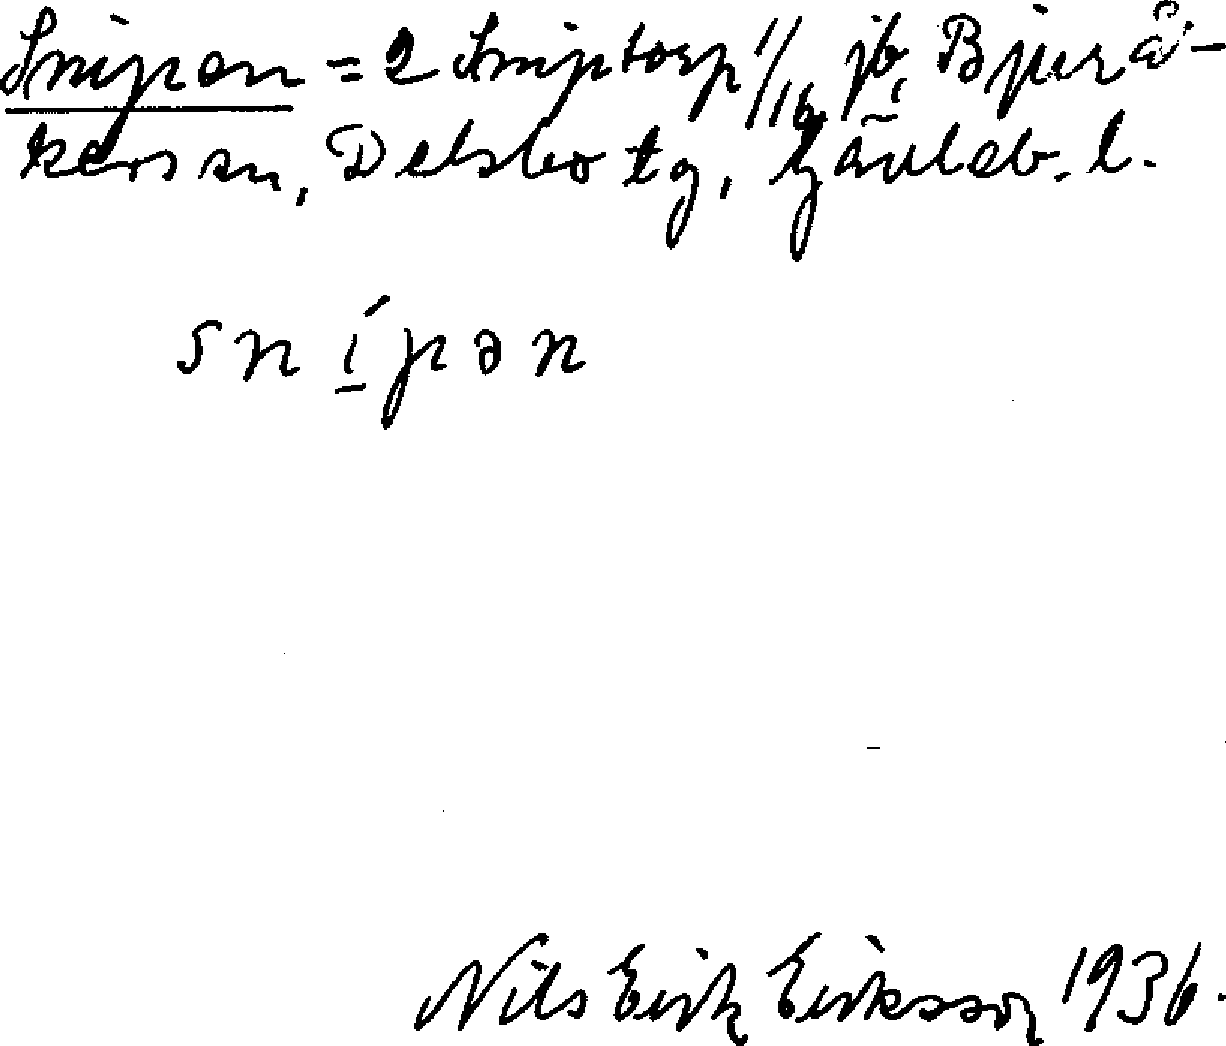 Snipen = 2 Sniptorp 1/16 jb, Bjurå-
kers sn, Delsbo tg, Gävleb. l.
snípən
Nils Erik Eriksson 1936.